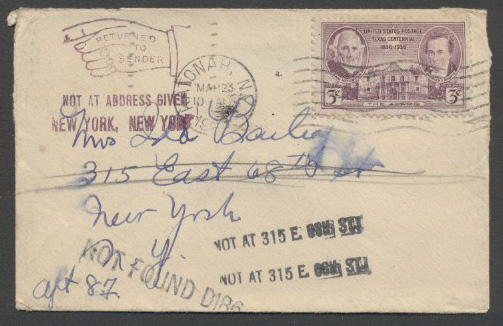 RETURNED
TO
SENDER
UNITED STATES POSTAGE
TEXAS CENTENNIAL
1836-1936
3c
3c
THE ALAMO
KATONAH, N.Y.
MAR 23
NOT AT ADDRESS GIVEN
NEW YORK, NEW YORK
Mrs Bailey
315 East 68th St
New York
N. Y.
Apt 87
NOT AT 315 E. 68th ST
NOT AT 315 E. 68th ST
NOT FOUND D186